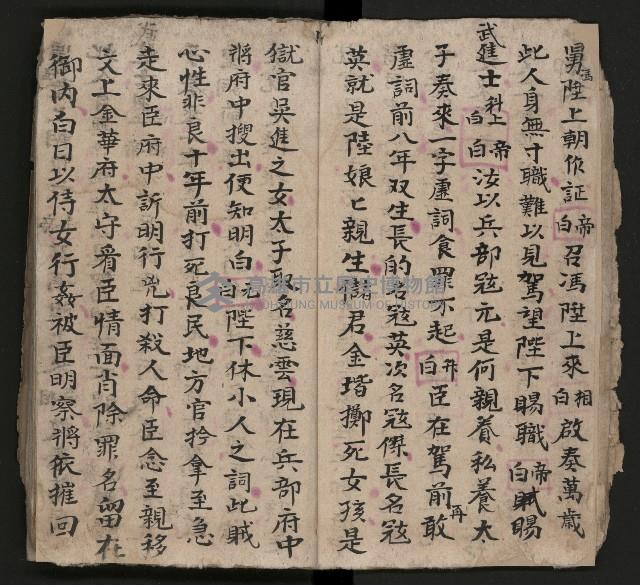 男陞上朝作証帝白召馮陞上來相白啟奏萬歲
此人身無寸職難以見駕望陛下賜職帝白賦賜
武進士科上白帝白汝以兵部冦元是何親養私養太
子奏來一字虛詞食罪不起科白臣在駕前再敢
虛詞前八年双生長的名冦英次名冦傑長名冦
英就是陸娘匕親生諸君金堦擲死女孩是
獄官吳進之女太子取名慈雲現在兵部府中
將府中搜出便知明白君白陛下休小人之詞此賊
心性非良十年前打死良民地方官扲拿至急
走來臣府中訴明行兇打殺人命臣念至親移
文上金華府太守看臣情面肖除罪名留在
御內白日以侍女行姦被臣明察將依摧回
高雄市立歷史博物館
KAOHSIUNG MUSEUM OF HISTORY